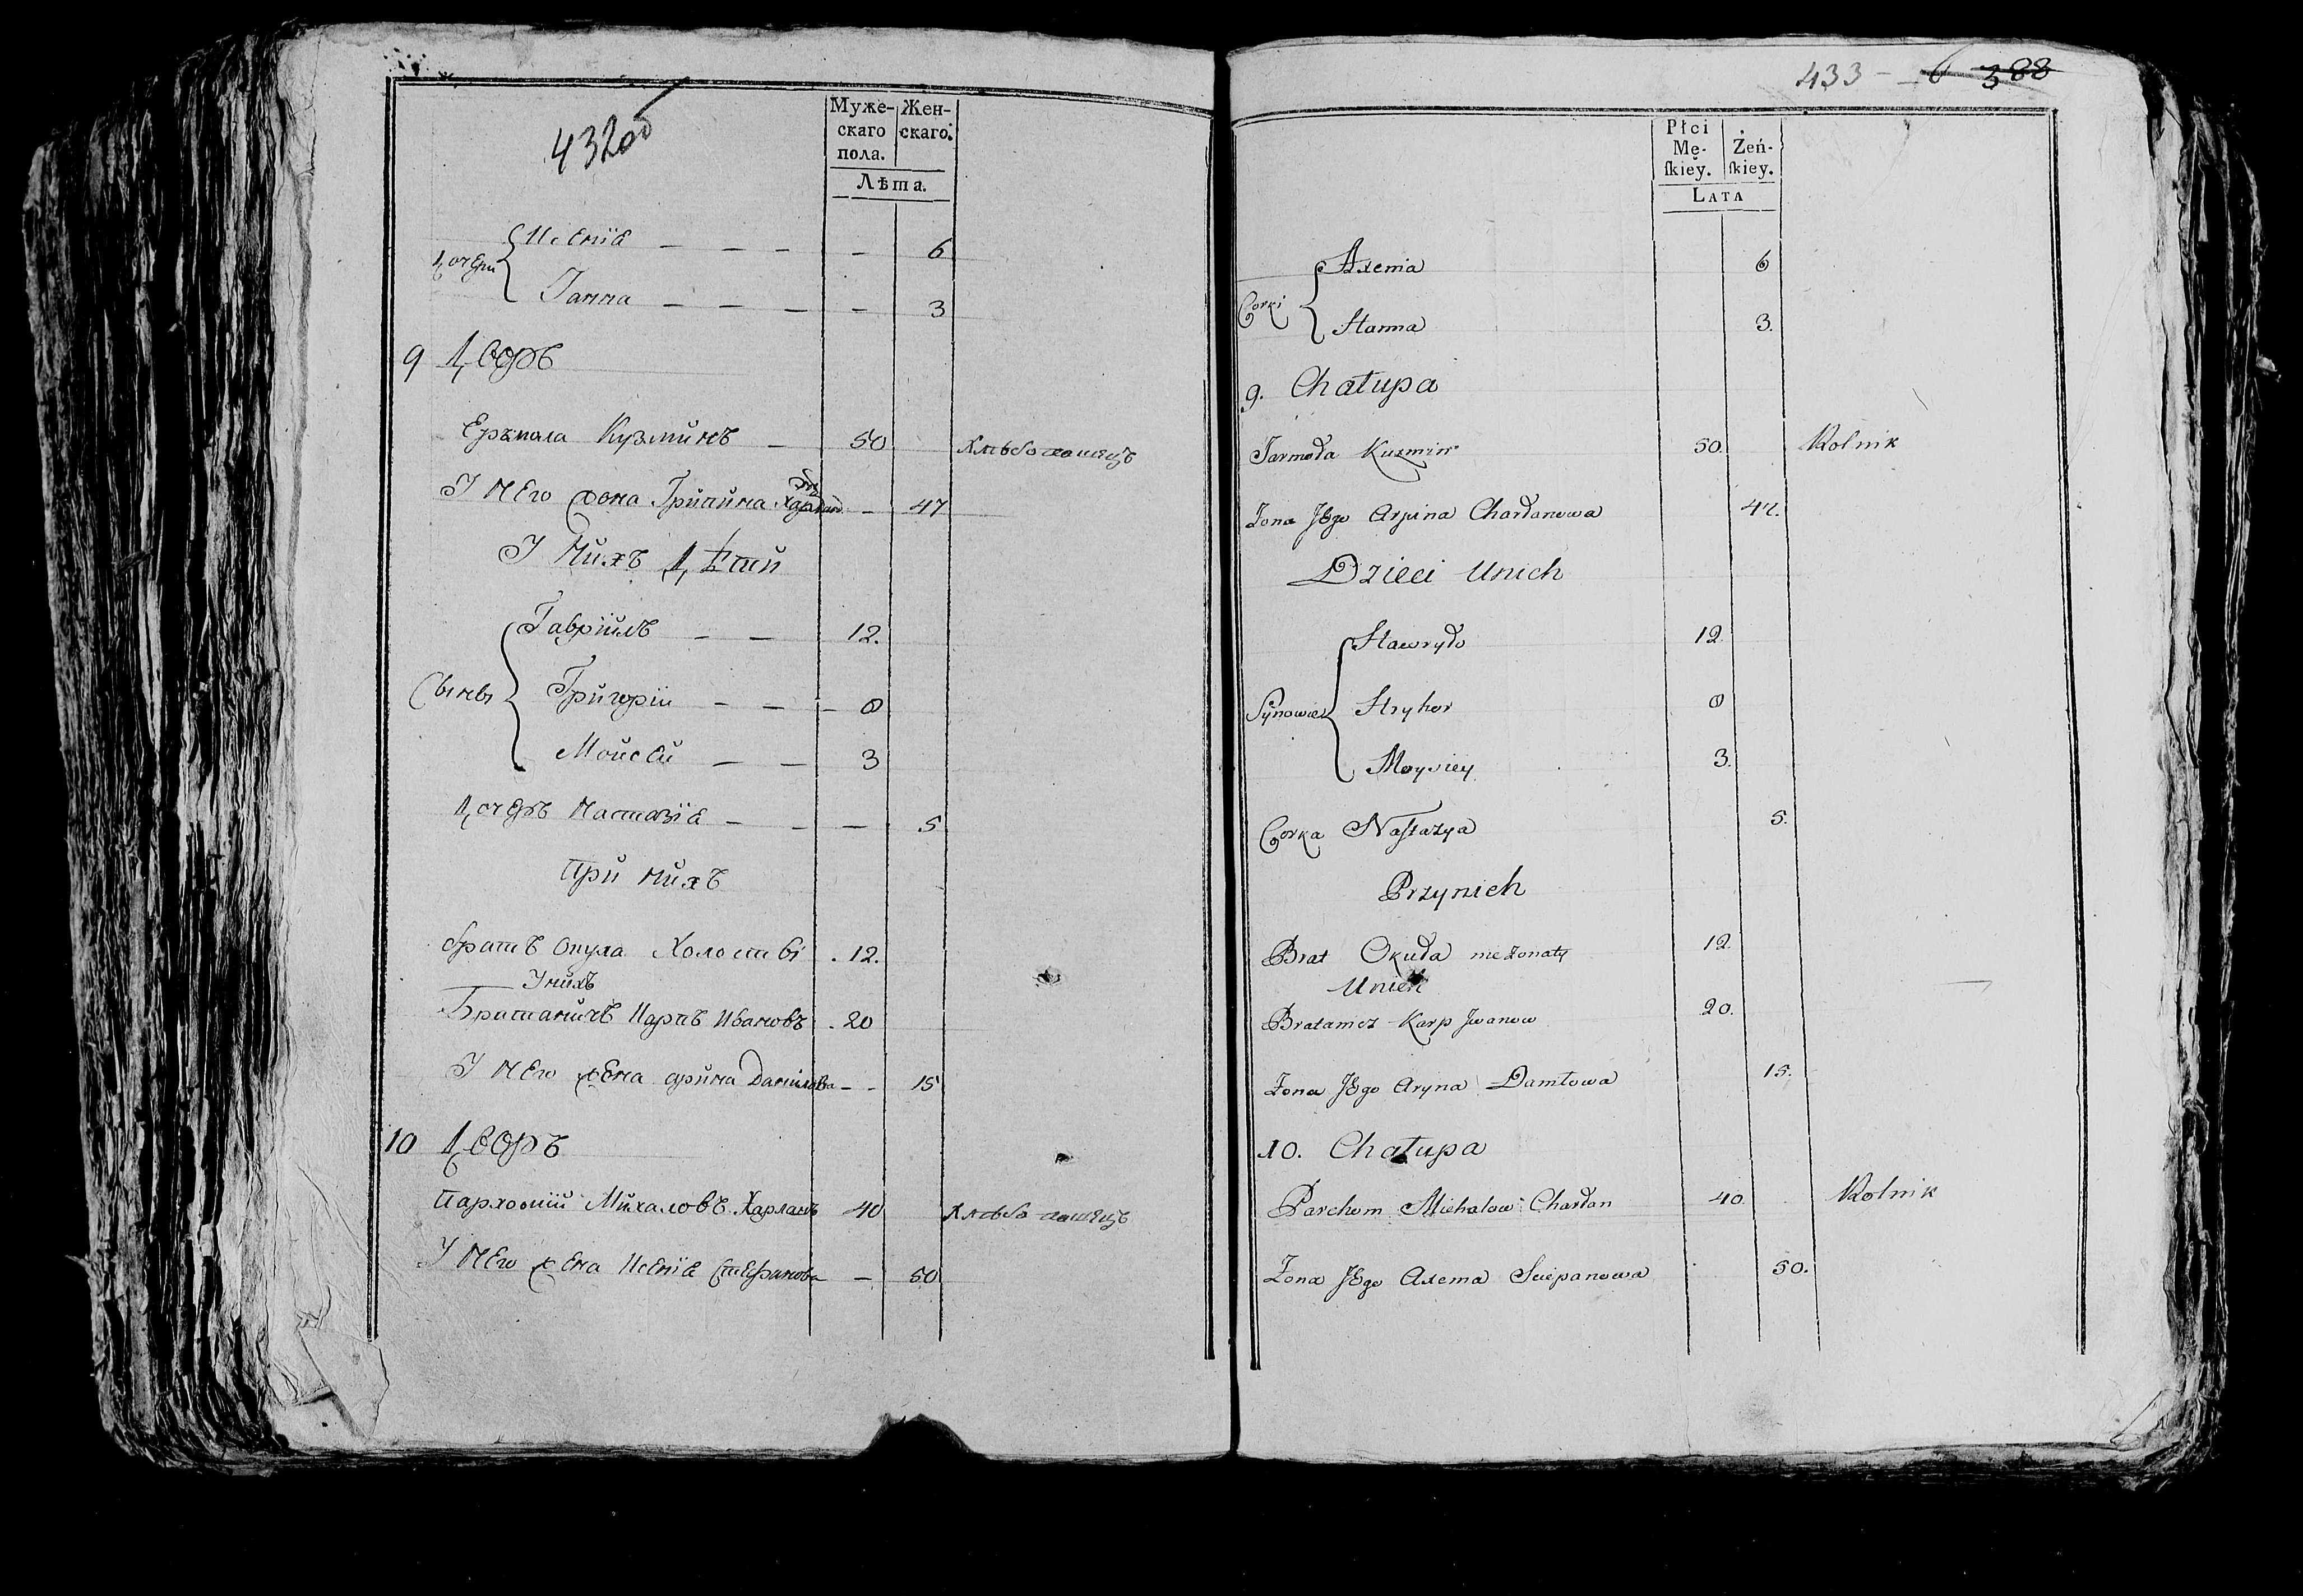 432об
Муже- Жен-
скаго скаго.
пола.
Лѣта.
Дочери { Ксенїѧ — — — — 6
Ганна — — — — 3
9 Дворъ
Ермола Кузминъ — 50 хлѣбопашецъ
У него жена Грипина — 47
У нихъ дѣтй
Сыны { Гаврїилъ — — 12.
Григорїи — — — 8
Мойсей — — 3
Дочеръ Настазїѧ — — — 5
При нихъ
братъ Окула Холосты . 12.
У нихъ
Братаничъ Карпъ Ивановъ . 20
У него жена орина Данилова — - 15
10 Дворъ
Пархомїй Михаловъ Харланъ 40 хлѣбопашецъ
У него жена Ксенїѧ Стефанова — 50
433 — 6 388
Płci
Mę- Żeń-
ſkiey. ſkiey.
Lata
Corki { Axenia 6
Hanna 3.
9. Chałupa
Jarmoła Kuzmin 50. Rolnik
Zona JEgo Arpina Charłanowa 47.
Dzieci Unich
Synowie { Hawryło 12.
Hryhor 8
Moysiey 3.
Corka Naſtazya 5.
Przynich
Brat Okuła niezonaty 12.
Unich
Bratanicz Karp Jwanow 20.
Zona JEgo Aryna Daniłowa 15.
10. Chałupa
Parchom Michalow Charłan 40. Rolnik
Zona JEgo Axenia Sciepanowa 50.